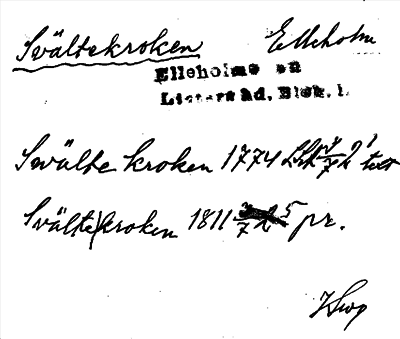 Svältekroken Elleholm
Elleholms sn
Listers hd, Blek. l.
Swälte kroken 1774
Svälte|kroken 1811 5 pr.